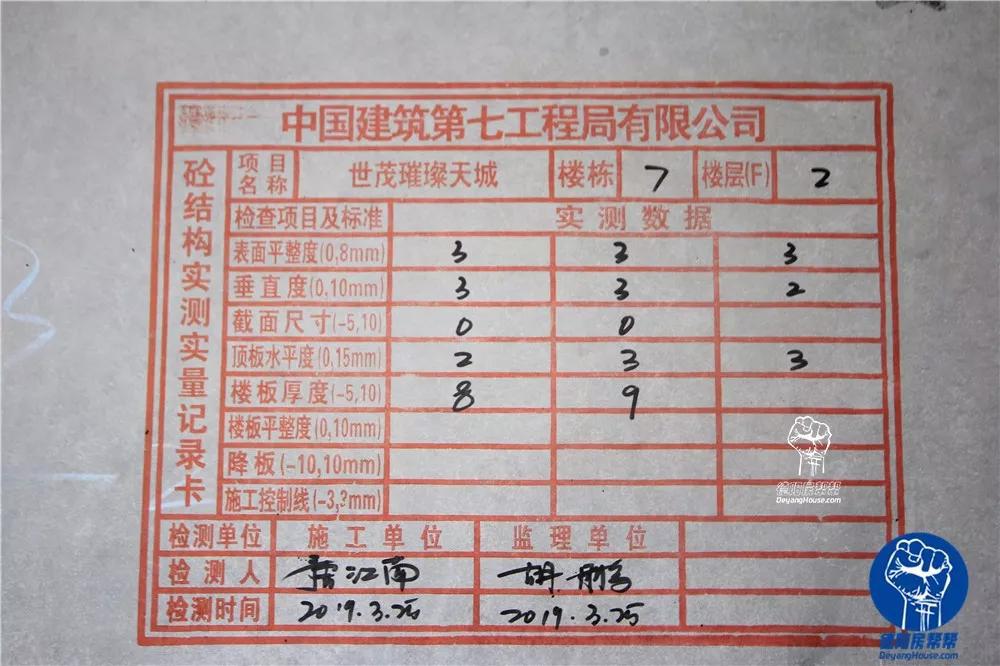 中国建筑第七工程局有限公司
砼结构实测实量记录卡
项目名称 世茂璀璨天城 楼栋 7 楼层(F) 2
检查项目及标准 实测数据
表面平整度(0,8mm) 3 3 3
垂直度(0,10mm) 3 3 2
截面尺寸(-5,10) 0 0
顶板水平度(0,15mm) 2 3 3
楼板厚度(-5,10) 8 9
楼板平整度(0,10mm)
降板(-10,10mm)
施工控制线(-3,3mm)
检测单位 施工单位 监理单位
检测人 江南 胡
检测时间 2019.3.25 2019.3.25
德阳房帮帮
DeyangHouse.com
德阳房帮帮
DeyangHouse.com